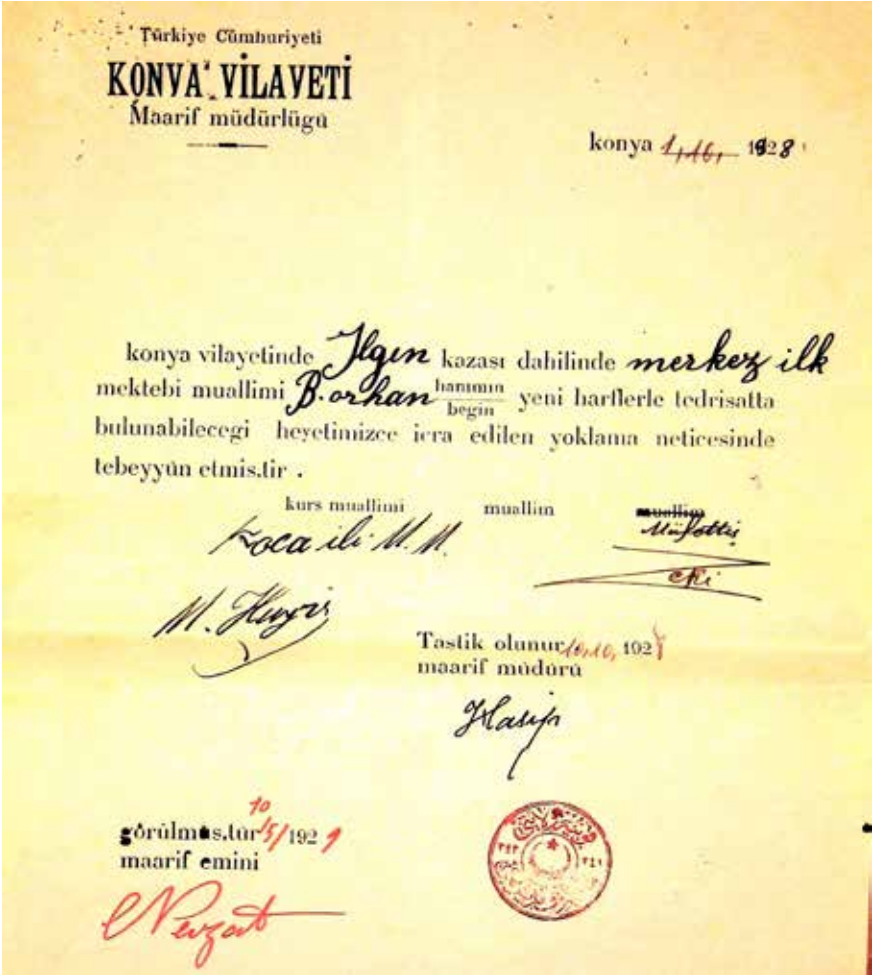 Türkiye Cümhuriyeti
KONYA VİLAYETİ
Maarif müdürlügü
konya 1,10, 1928
konya vilayetinde Ilgın kazası dahilinde merkez ilk
mektebi muallimi B. orhan hanımın begin yeni harflerle tedrisatta
bulunabilecegi heyetimizce icra edilen yoklama neticesinde
tebeyyün etmis.tir .
kurs muallimi muallim muallim
Koca ili M. M. Müfettiş
Zeki
M.
Tastik olunur 10,10, 1928
maarif müdürü
Hasip
görülmüs.tür 10/5/1929
maarif emini
Nevzat